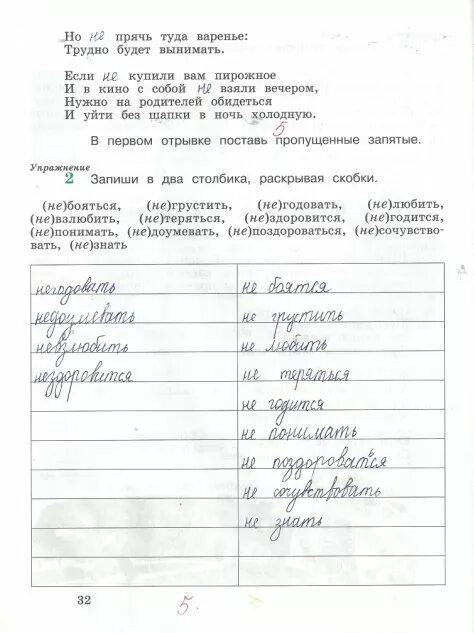 Но не прячь туда варенье:
Трудно будет вынимать.
Если не купили вам пирожное
И в кино с собой не взяли вечером,
Нужно на родителей обидеться
И уйти без шапки в ночь холодную.
5
В первом отрывке поставь пропущенные запятые.
Упражнение
2 Запиши в два столбика, раскрывая скобки.
(не)бояться, (не)грустить, (не)годовать, (не)любить,
(не)взлюбить, (не)теряться, (не)здоровится, (не)годится,
(не)понимать, (не)доумевать, (не)поздороваться, (не)сочувство-
вать, (не)знать
негодовать не боятся
недоумевать не грустить
невзлюбить не любить
нездоровится не теряться
не годится
не понимать
не поздороваться
не сочувствовать
не знать
32 5.